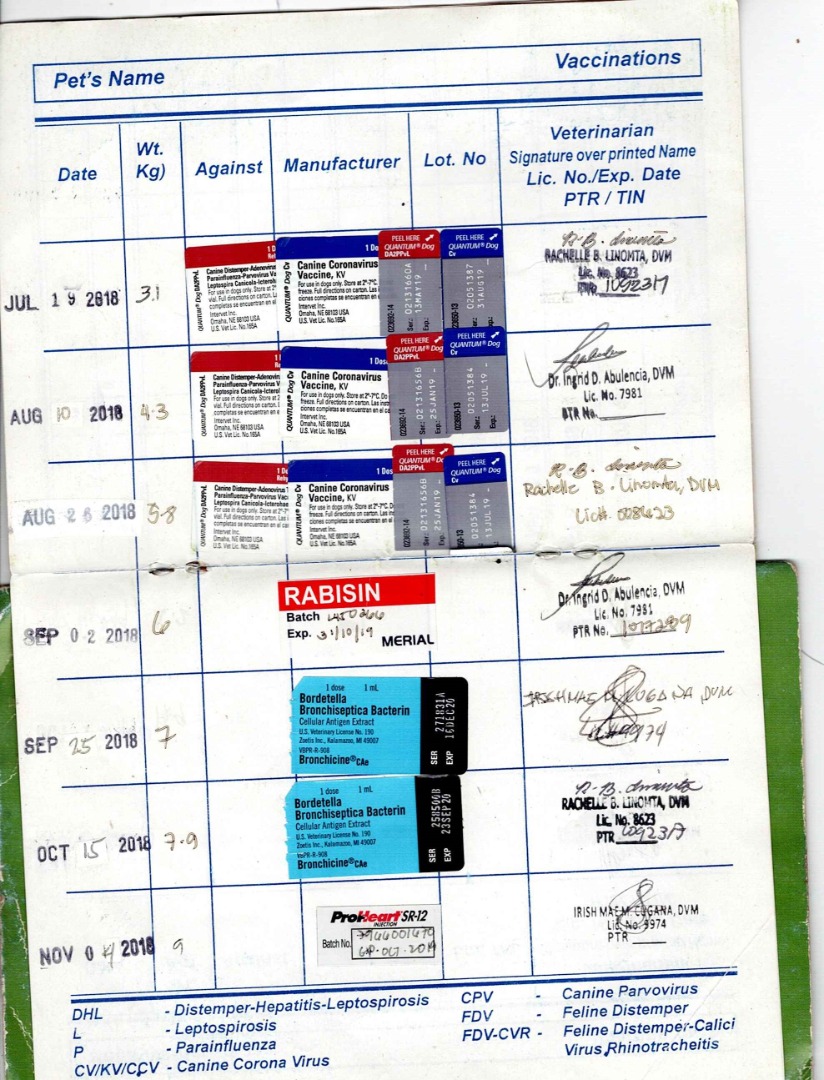 Pet's Name
Vaccinations
Date
Wt.
Kg)
Against
Manufacturer
Lot. No
Veterinarian
Signature over printed Name
Lic. No./Exp. Date
PTR / TIN
JUL 19 2018
3.1
QUANTUM® Dog DA2PPvL
1 D
Canine Distemper-Adenovir
Parainfluenza-Parvovirus Va
Leptospira Canicola-Icteroh
For use in dogs only. Store at 2
vial. Full directions on carton.
completas se encuentran en e
Intervet Inc.
Omaha, NE 68103 USA
U.S. Vet Lic. No.165A
QUANTUM® Dog Cv
1 Do
Canine Coronavirus
Vaccine, KV
For use in dogs only. Store at 2°-7°C.
freeze. Full directions on carton. Las
ciones completas se encuentran en el
Intervet Inc.
Omaha, NE 68103 USA
U.S. Vet Lic. No.165A
PEEL HERE
QUANTUM® Dog
DA2PPvL
023692-14
Ser: 02131660A
Exp: 13MAY19 -
PEEL HERE
QUANTUM® Dog
Cv
Ser: 02051387
RACHELLE B. LINOMTA, DVM
Lic. No. 8623
1092317
AUG 10 2018
4.3
QUANTUM® Dog DA2PPvL
1 D
Canine Distemper-Adenovir
Parainfluenza-Parvovirus V
Leptospira Canicola-Icteroh
For use in dogs only. Store at 2
vial. Full directions on carton.
completas se encuentran en
Intervet Inc.
Omaha, NE 68103 USA
U.S. Vet Lic. No.165A
QUANTUM® Dog Cv
1 Dos
Canine Coronavirus
Vaccine, KV
For use in dogs only. Store at 2°-7°C. Do
freeze. Full directions on carton. Las
ciones completas se encuentran en el ca
Intervet Inc.
Omaha, NE 68103 USA
U.S. Vet Lic. No.165A
PEEL HERE
QUANTUM® Dog
DA2PPvL
023692-14
Ser: 02131656B
Exp: 25JAN19 -
PEEL HERE
QUANTUM® Dog
Cv
023650-13
Ser: 02051384
Exp: 13JUL19 -
Dr. Ingrid D. Abulencia, DVM
Lic. No. 7981
PTR No.
AUG 26 2018
5.8
QUANTUM® Dog DA2PPvL
1 D
Canine Distemper-Adenovirus
Parainfluenza-Parvovirus Vac
Leptospira Canicola-Icteroha
For use in dogs only. Store at 2
vial. Full directions on carton.
completas se encuentran en
Intervet Inc.
Omaha, NE 68103 USA
U.S. Vet Lic. No.165A
QUANTUM® Dog Cv
1 Dos
Canine Coronavirus
Vaccine, KV
For use in dogs only. Store at 2°-7°C. D
freeze. Full directions on carton. Las in
ciones completas se encuentran en el c
Intervet Inc.
Omaha, NE 68103 USA
U.S. Vet Lic. No.165A
PEEL HERE
QUANTUM® Do
DA2PPvL
023692-14
Ser: 02131656B
Exp: 25JAN19 -
PEEL HERE
QUANTUM® Dog
Cv
023650-13
Ser: 02051384
13JUL19 -
Rachelle B. Linomta, DVM
Lic#. 008623
SEP 02 2018
6
RABISIN
Batch
Exp. 31/10/19
MERIAL
Dr. Ingrid D. Abulencia, DVM
Lic. No. 7981
PTR No. 1077289
SEP 25 2018
7
1 dose 1 mL
Bordetella
Bronchiseptica Bacterin
Cellular Antigen Extract
U.S. Veterinary License No. 190
Zoetis Inc., Kalamazoo, MI 49007
VBPR-R-908
Bronchicine®CAe
SER 271831A
EXP 16DEC20
DVM
OCT 15 2018
7.9
1 dose 1 mL
Bordetella
Bronchiseptica Bacterin
Cellular Antigen Extract
U.S. Veterinary License No. 190
Zoetis Inc., Kalamazoo, MI 49007
VBPR-R-908
Bronchicine®CAe
SER 258500B
EXP 22SEP20
RACHELLE B. LINOMTA, DVM
Lic. No. 8623
PTR 1092317
NOV 04 2018
9
ProHeart SR-12
INJECTION
Batch No.
EXP-OCT-2019
IRISH MAE M. CUGANA, DVM
Lic. No. 9974
PTR
DHL - Distemper-Hepatitis-Leptospirosis
L - Leptospirosis
P - Parainfluenza
CV/KV/CCV - Canine Corona Virus
CPV - Canine Parvovirus
FDV - Feline Distemper
FDV-CVR - Feline Distemper-Calici
Virus Rhinotracheitis